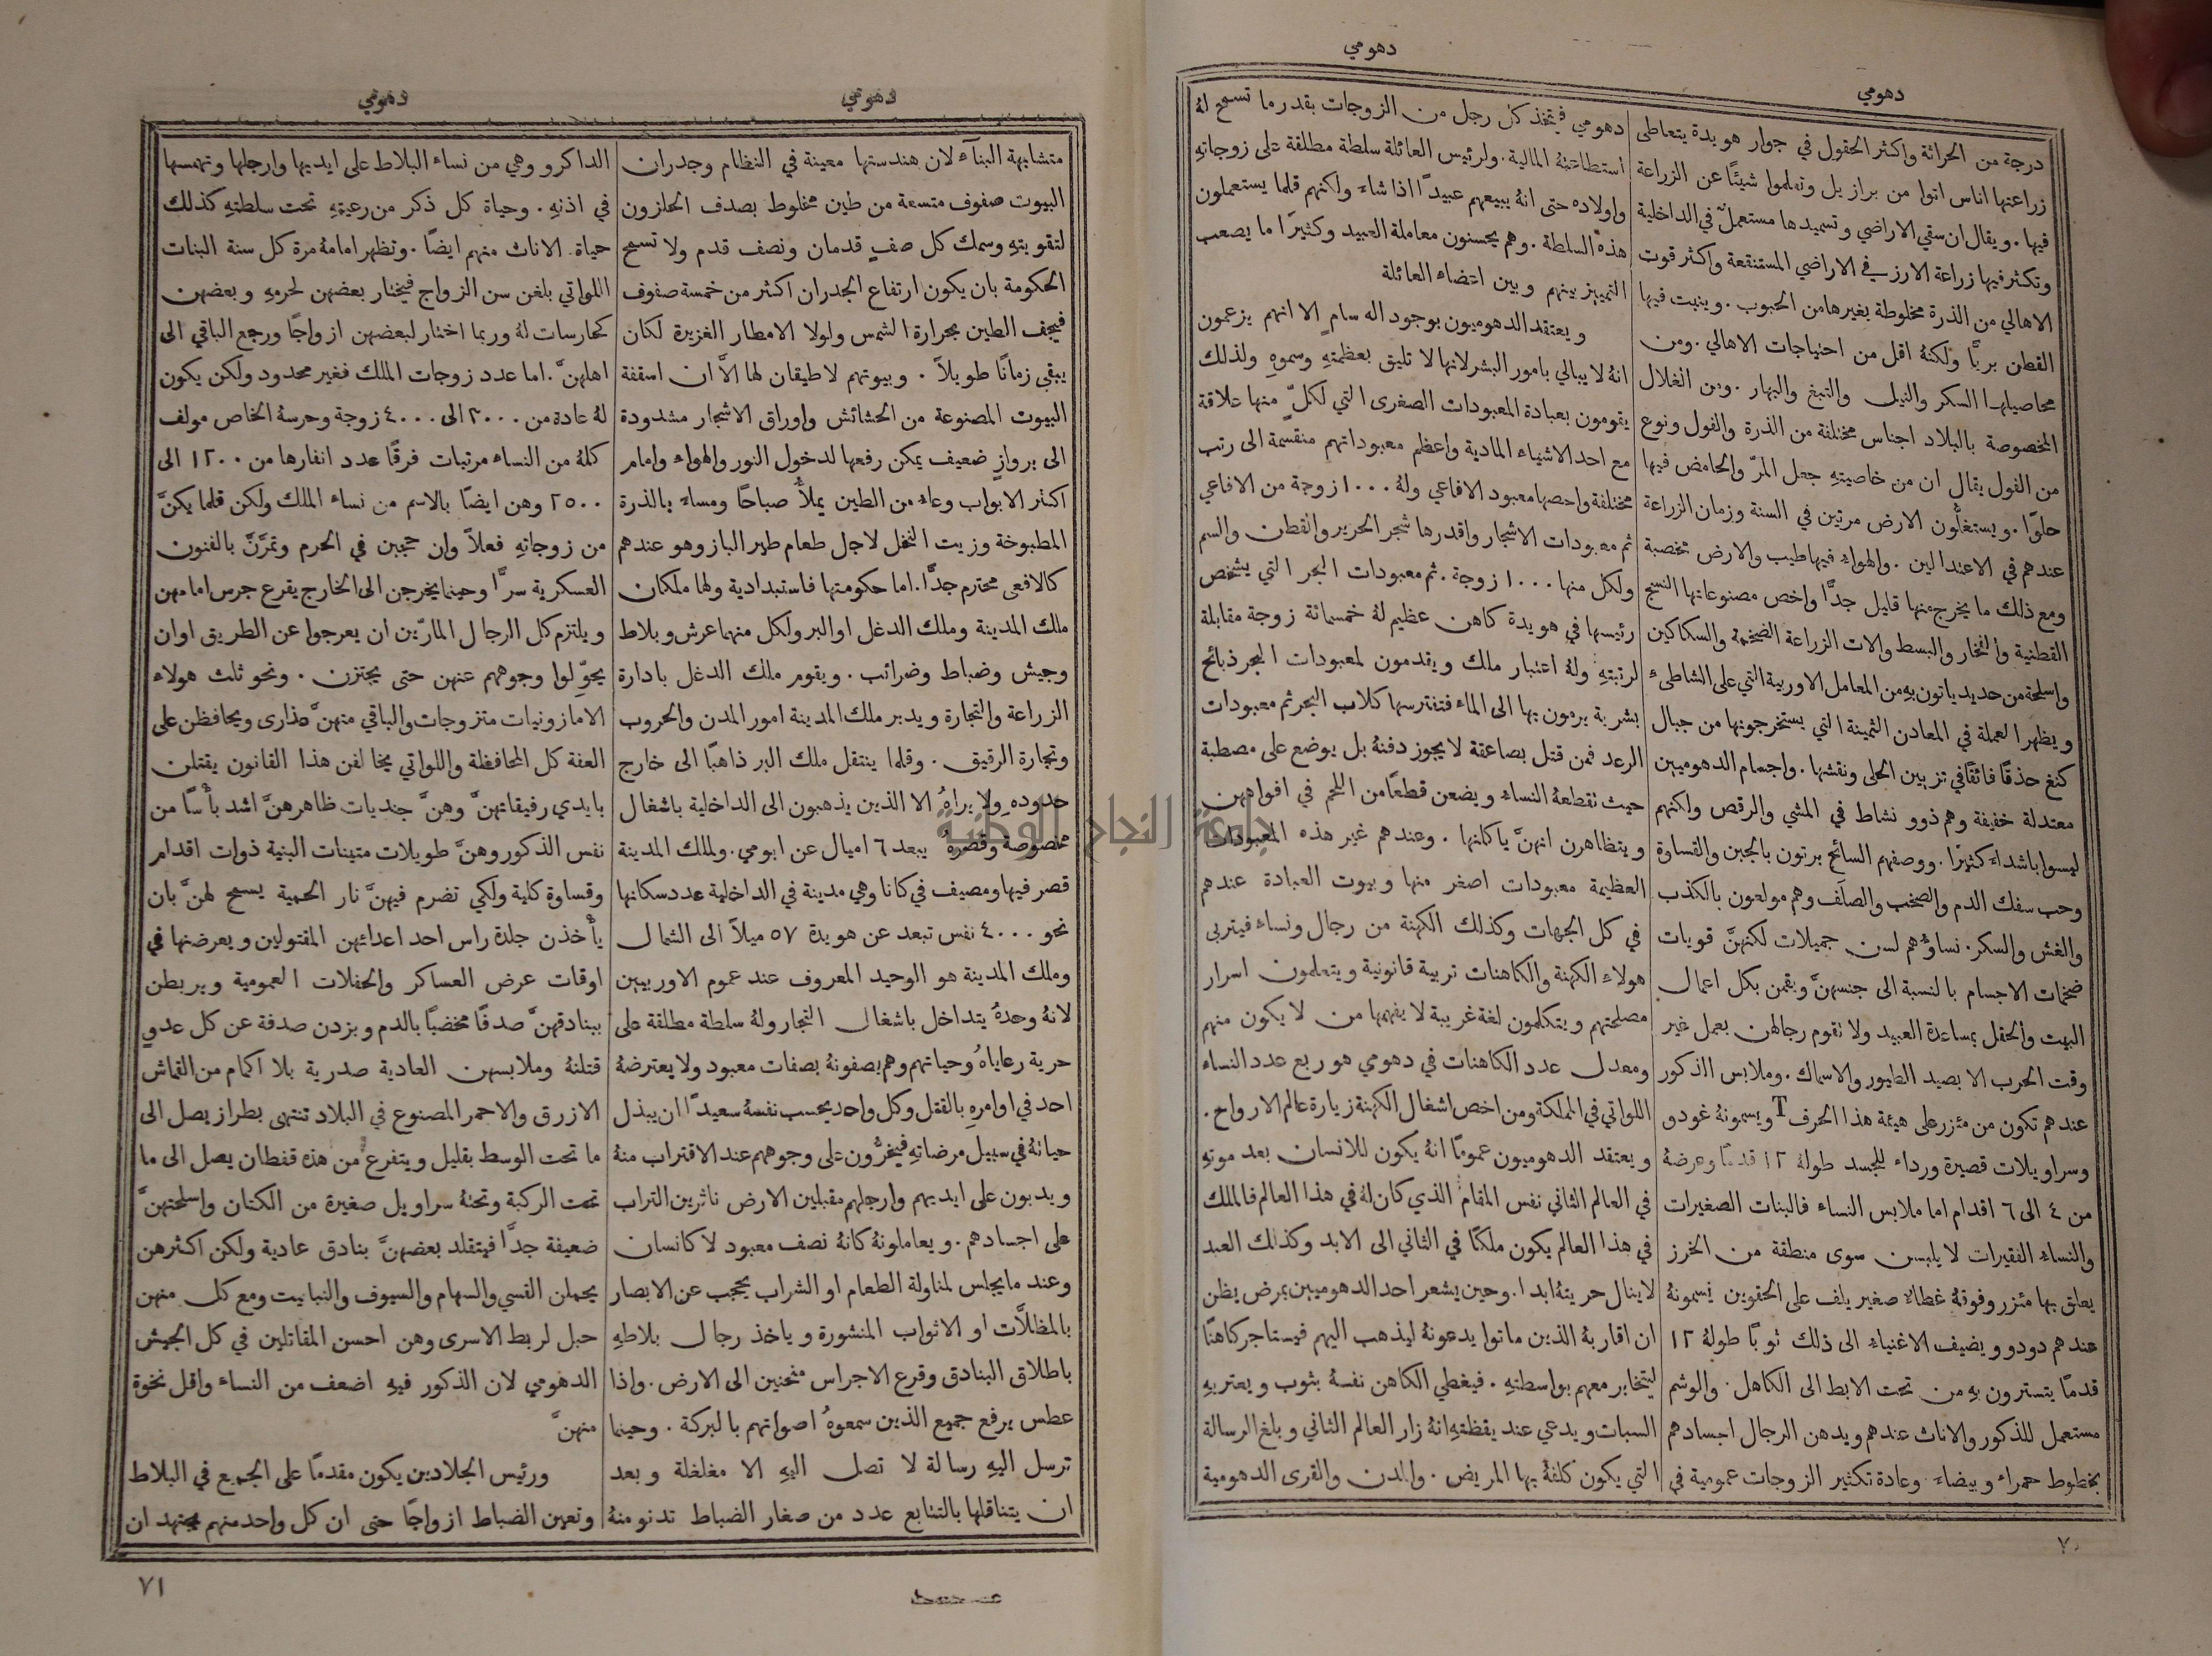 دهومي
دهومي
درجة من الحراثة واكثر الحقول في جوار هويدة يتعاطى
زراعتها اناس اتوا من برازيل وتعلموا شيئًا عن الزراعة
فيها. ويقال ان سقي الاراضي وتسميدها مستعمل في الداخلية
وتكثر فيها زراعة الارز في الاراضي المستنقعة واكثر قوت
الاهالي من الذرة مخلوطة بغيرها من الحبوب. وينبت فيها
القطن بريًّا ولكنهُ اقل من احتياجات الاهالي. ومن
محاصيلها السكر والنيل والتبغ والبهار. ومن الغلال
المخصوصة بالبلاد اجناس مختلفة من الذرة والفول ونوع
من الفول يقال ان من خاصيتهِ جعل المرّ والحامض فيها
حلوًا. ويستغلُّون الارض مرتين في السنة وزمان الزراعة
عندهم في الاعتدالين. والهواء فيها طيب والارض مخصبة
ومع ذلك ما يخرج منها قليل جدًّا واخص مصنوعاتها النسج
القطنية والفخار والبسط والات الزراعة الضخمة والسكاكين
واسلحة من حديد ياتون بهِ من المعامل الاوربية التي على الشاطىء
ويظهر العملة في المعادن الثمينة التي يستخرجونها من جبال
كنغ حذقًا فائقًا في تزيين الحلى ونقشها. واجسام الدهوميين
معتدلة خفيفة وهم ذوو نشاط في المشي والرقص ولكنهم
ليسوا باشداء كثيرًا. ووصفهم السائح برتون بالجبن والقساوة
وحب سفك الدم والصخب والصلَف وهم مولعون بالكذب
والغش والسكر. نساؤهم لسن جميلات لكنهنَّ قويات
ضخمات الاجسام بالنسبة الى جنسهنَّ ويقمن بكل اعمال
البيت والحقل بمساعدة العبيد ولا تقوم رجالهن بعمل غير
وقت الحرب الا بصيد الطيور والاسماك. وملابس الذكور
عندهم تكون من مئزر على هيئة هذا الحرف T ويسمونهُ غودو
وسراويلات قصيرة ورداء للجسد طولهُ ١٢ قدمًا وعرضهُ
من ٤ الى ٦ اقدام اما ملابس النساء فالبنات الصغيرات
والنساء الفقيرات لا يلبسن سوى منطقة من الخرز
يعلق بها مئزر وفوقهُ غطاء صغير يلف على الحقوين يسمونهُ
عندهم دودو ويضيف الاغنياء الى ذلك ثوبًا طولهُ ١٢
قدمًا يتسترون بهِ من تحت الابط الى الكاهل. والوشم
مستعمل للذكور والاناث عندهم ويدهن الرجال اجسادهم
بخطوط حمراء وبيضاء. وعادة تكثير الزوجات عمومية في
دهومي فيتخذ كل رجل من الزوجات بقدر ما تسمح لهُ
استطاعتهُ المالية. ولرئيس العائلة سلطة مطلقة على زوجاتهِ
واولاده حتى انهُ يبيعهم عبيدًا اذا شاء ولكنهم قلما يستعملون
هذه السلطة. وهم يحسنون معاملة العبيد وكثيرًا ما يصعب
التمييز بينهم وبين اعضاء العائلة
ويعتقد الدهوميون بوجود اله سامٍ الا انهم يزعمون
انهُ لا يبالي بامور البشر لانها لا تليق بعظمتهِ وسموهِ ولذلك
يقومون بعبادة المعبودات الصغرى التي لكلٍّ منها علاقة
مع احد الاشياء المادية واعظم معبوداتهم منقسمة الى رتب
مختلفة واخصها معبود الافاعي ولهُ ١٠٠٠ زوجة من الافاعي
ثم معبودات الاشجار واقدرها شجر الحرير والقطن والسم
ولكل منها ١٠٠٠ زوجة. ثم معبودات البحر التي يشخص
رئيسها في هويدة كاهن عظيم لهُ خمسمائة زوجة مقابلة
لرتبتهِ ولهُ اعتبار ملك ويقدمون لمعبودات البحر ذبائح
بشرية يرمون بها الى الماء فتفترسها كلاب البحر ثم معبودات
الرعد فمن قتل بصاعقة لا يجوز دفنهُ بل يوضع على مصطبة
حيث تقطعهُ النساء ويضعن قطعًا من اللحم في افواههن
ويتظاهرن انهنَّ ياكلنها. وعندهم غير هذه المعبودات
العظيمة معبودات اصغر منها وبيوت العبادة عندهم
في كل الجهات وكذلك الكهنة من رجال ونساء فيتربى
هولاء الكهنة والكاهنات تربية قانونية ويتعلمون اسرار
مصلحتهم ويتكلمون لغة غريبة لا يفهمها من لا يكون منهم
ومعدل عدد الكاهنات في دهومي هو ربع عدد النساء
اللواتي في المملكة ومن اخص اشغال الكهنة زيارة عالم الارواح.
ويعتقد الدهوميون عمومًا انهُ يكون للانسان بعد موتهِ
في العالم الثاني نفس المقام الذي كان لهُ في هذا العالم فالملك
في هذا العالم يكون ملكًا في الثاني الى الابد وكذلك العبد
لا ينال حريتهُ ابدا. وحين يشعر احد الدهوميين بمرض يظن
ان اقاربهُ الذين ماتوا يدعونهُ ليذهب اليهم فيستاجر كاهنًا
ليتخابر معهم بواسطتهِ. فيغطي الكاهن نفسهُ بثوب ويعتريهِ
السبات ويدعي عند يقظتهِ انهُ زار العالم الثاني وبلغ الرسالة
التي يكون كلفهُ بها المريض. والمدن والقرى الدهومية
٧٠
دهومي
دهومي
متشابهة البناء لان هندستها معينة في النظام وجدران
البيوت صفوف متسعة من طين مخلوط بصدف الحلزون
لتقويتهِ وسمك كل صفٍ قدمان ونصف قدم ولا تسمح
الحكومة بان يكون ارتفاع الجدران اكثر من خمسة صفوف
فيجف الطين بحرارة الشمس ولولا الامطار الغزيرة لكان
يبقى زمانًا طويلاً. وبيوتهم لا طيقان لها الاَّ ان اسقفة
البيوت المصنوعة من الحشائش واوراق الاشجار مشدودة
الى بروازٍ ضعيف يمكن رفعها لدخول النور والهواء وامام
اكثر الابواب وعاء من الطين يملأُ صباحًا ومساء بالذرة
المطبوخة وزيت النخل لاجل طعام طير الباز وهو عندهم
كالافعى محترم جدًّا. اما حكومتها فاستبدادية ولها ملكان
ملك المدينة وملك الدغل او البر ولكل منهما عرش وبلاط
وجيش وضباط وضرائب. ويقوم ملك الدغل بادارة
الزراعة والتجارة ويدبر ملك المدينة امور المدن والحروب
وتجارة الرقيق. وقلما ينتقل ملك البر ذاهبًا الى خارج
حدوده ولا يراهُ الا الذين يذهبون الى الداخلية باشغال
مخصوصة وقصرهُ يبعد ٦ اميال عن ابومي. ولملك المدينة
قصر فيها ومصيف في كانا وهي مدينة في الداخلية عدد سكانها
نحو ٤٠٠٠ نفس تبعد عن هويدة ٥٧ ميلاً الى الشمال
وملك المدينة هو الوحيد المعروف عند عموم الاوربيين
لانهُ وحدهُ يتداخل باشغال التجار ولهُ سلطة مطلقة على
حرية رعاياهُ وحياتهم وهم يصفونهُ بصفات معبود ولا يعترضهُ
احد في اوامرهِ بالقتل وكل واحد يحسب نفسهُ سعيدًا ان يبذل
حياتهُ في سبيل مرضاتهِ فيخرُّون على وجوههم عند الاقتراب منهُ
ويدبون على ايديهم وارجلهم مقبلين الارض ناثرين التراب
على اجسادهم. ويعاملونهُ كانهُ نصف معبود لا كانسان
وعند ما يجلس لمناولة الطعام او الشراب يحجب عن الابصار
بالمظلاَّت او الاثواب المنشورة وياخذ رجال بلاطهِ
باطلاق البنادق وقرع الاجراس منحنين الى الارض. واذا
عطس يرفع جميع الذين سمعوهُ اصواتهم بالبركة. وحينما
ترسل اليهِ رسالة لا تصل اليهِ الا مغلغلة وبعد
ان يتناقلها بالتتابع عدد من صغار الضباط تدنو منهُ
الداكرو وهي من نساء البلاط على ايديها وارجلها وتهمسها
في اذنهِ. وحياة كل ذكر من رعيتهِ تحت سلطتهِ كذلك
حياة الاناث منهم ايضًا. وتظهر امامهُ مرة كل سنة البنات
اللواتي بلغن سن الزواج فيختار بعضهن لحرمهِ وبعضهن
كحارسات لهُ وربما اختار لبعضهن ازواجًا ورجع الباقي الى
اهلهنَّ. اما عدد زوجات الملك فغير محدود ولكن يكون
لهُ عادة من ٣٠٠٠ الى ٤٠٠٠ زوجة وحرسهُ الخاص مولف
كلهُ من النساء مرتبات فرقًا عدد انفارها من ١٢٠٠ الى
٢٥٠٠ وهن ايضًا بالاسم من نساء الملك ولكن قلما يكنَّ
من زوجاتهِ فعلاً وان حجبن في الحرم وتمرَّنَّ بالفنون
العسكرية سرًّا وحينما يخرجن الى الخارج يقرع جرس امامهن
ويلتزم كل الرجال المارّين ان يعرجوا عن الطريق او ان
يحوّلوا وجوههم عنهن حتى يجتزن. ونحو ثلث هولاء
الامازونيات متزوجات والباقي منهنَّ عذارى ويحافظن على
العفة كل المحافظة واللواتي يخالفن هذا القانون يقتلن
بايدي رفيقاتهنَّ وهنَّ جنديات ظاهرهنَّ اشد بأسًا من
نفس الذكور وهنَّ طويلات متينات البنية ذوات اقدام
وقساوة كلية ولكي تضرم فيهنَّ نار الحمية يسمح لهنَّ بان
يأخذن جلدة راس احد اعدائهن المقتولين ويعرضنها في
اوقات عرض العساكر والحفلات العمومية ويربطن
ببنادقهنَّ صدفًا مخضبًا بالدم ويزدن صدفة عن كل عدوٍ
قتلنهُ وملابسهن العادية صدرية بلا اكمام من القماش
الازرق والاحمر المصنوع في البلاد تنتهي بطراز يصل الى
ما تحت الوسط بقليل ويتفرع من هذه قفطان يصل الى ما
تحت الركبة وتحتهُ سراويل صغيرة من الكتان واسلحتهنَّ
ضعيفة جدًّا فيتقلد بعضهنَّ بنادق عادية ولكن اكثرهن
يحملن القسي والسهام والسيوف والنبابيت ومع كل منهن
حبل لربط الاسرى وهن احسن المقاتلين في كل الجيش
الدهومي لان الذكور فيهِ اضعف من النساء واقل نخوة
منهنَّ
ورئيس الجلادين يكون مقدمًا على الجميع في البلاط
وتعين الضباط ازواجًا حتى ان كل واحد منهم يجتهد ان
٧١
جامعة النجاح الوطنية